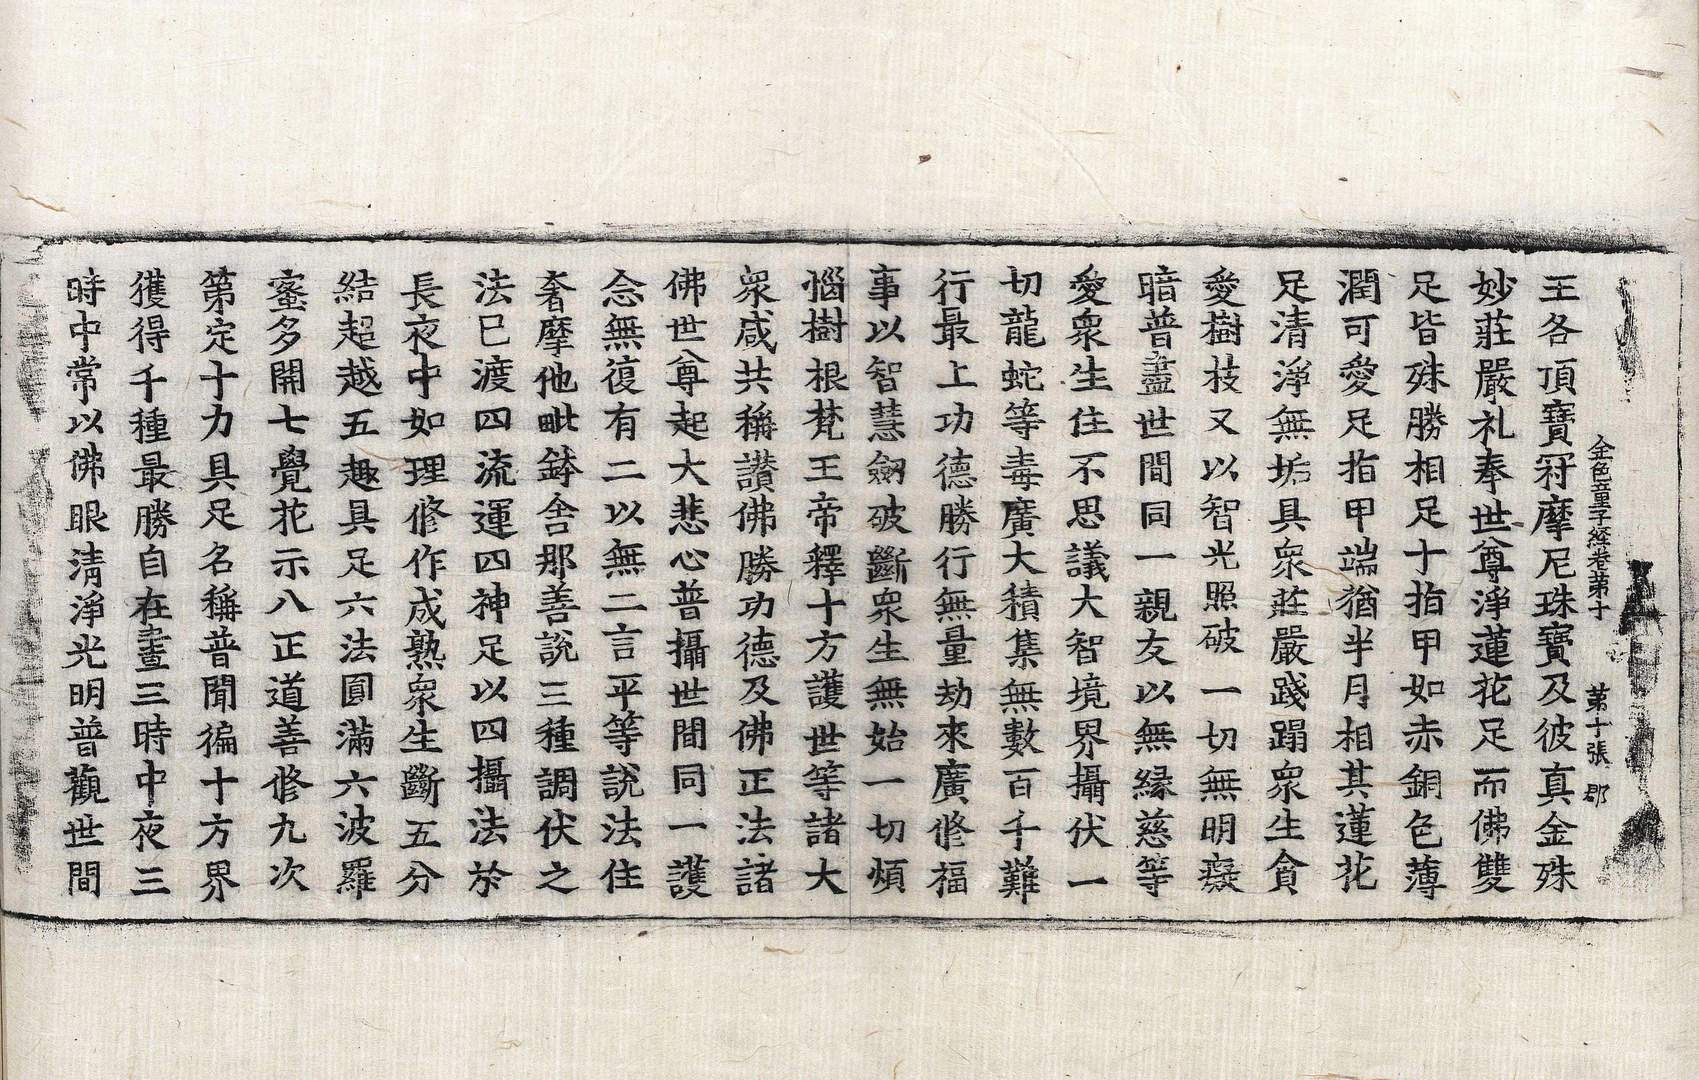 金色童子經卷第十　第十張　郡
王各頂寶冠摩尼珠寶及彼真金殊
妙莊嚴礼奉世尊淨蓮花足而佛雙
足皆殊勝相足十指甲如赤銅色薄
潤可愛足指甲端猶半月相其蓮花
足清淨無垢具衆莊嚴踐蹋衆生貪
愛樹枝又以智光照破一切無明癡
暗普盡世間同一親友以無緣慈等
愛衆生住不思議大智境界攝伏一
切龍蛇等毒廣大積集無數百千難
行最上功德勝行無量劫來廣修福
事以智慧劒破斷衆生無始一切煩
惱樹根梵王帝釋十方護世等諸大
衆咸共稱讃佛勝功德及佛正法諸
佛世尊起大悲心普攝世間同一護
念無復有二以無二言平等說法住
奢摩他毗鉢舍那善說三種調伏之
法已渡四流運四神足以四攝法於
長夜中如理修作成熟衆生斷五分
結超越五趣具足六法圓滿六波羅
蜜多開七覺花示八正道善修九次
第定十力具足名稱普聞徧十方界
獲得千種最勝自在晝三時中夜三
時中常以佛眼清淨光明普觀世間